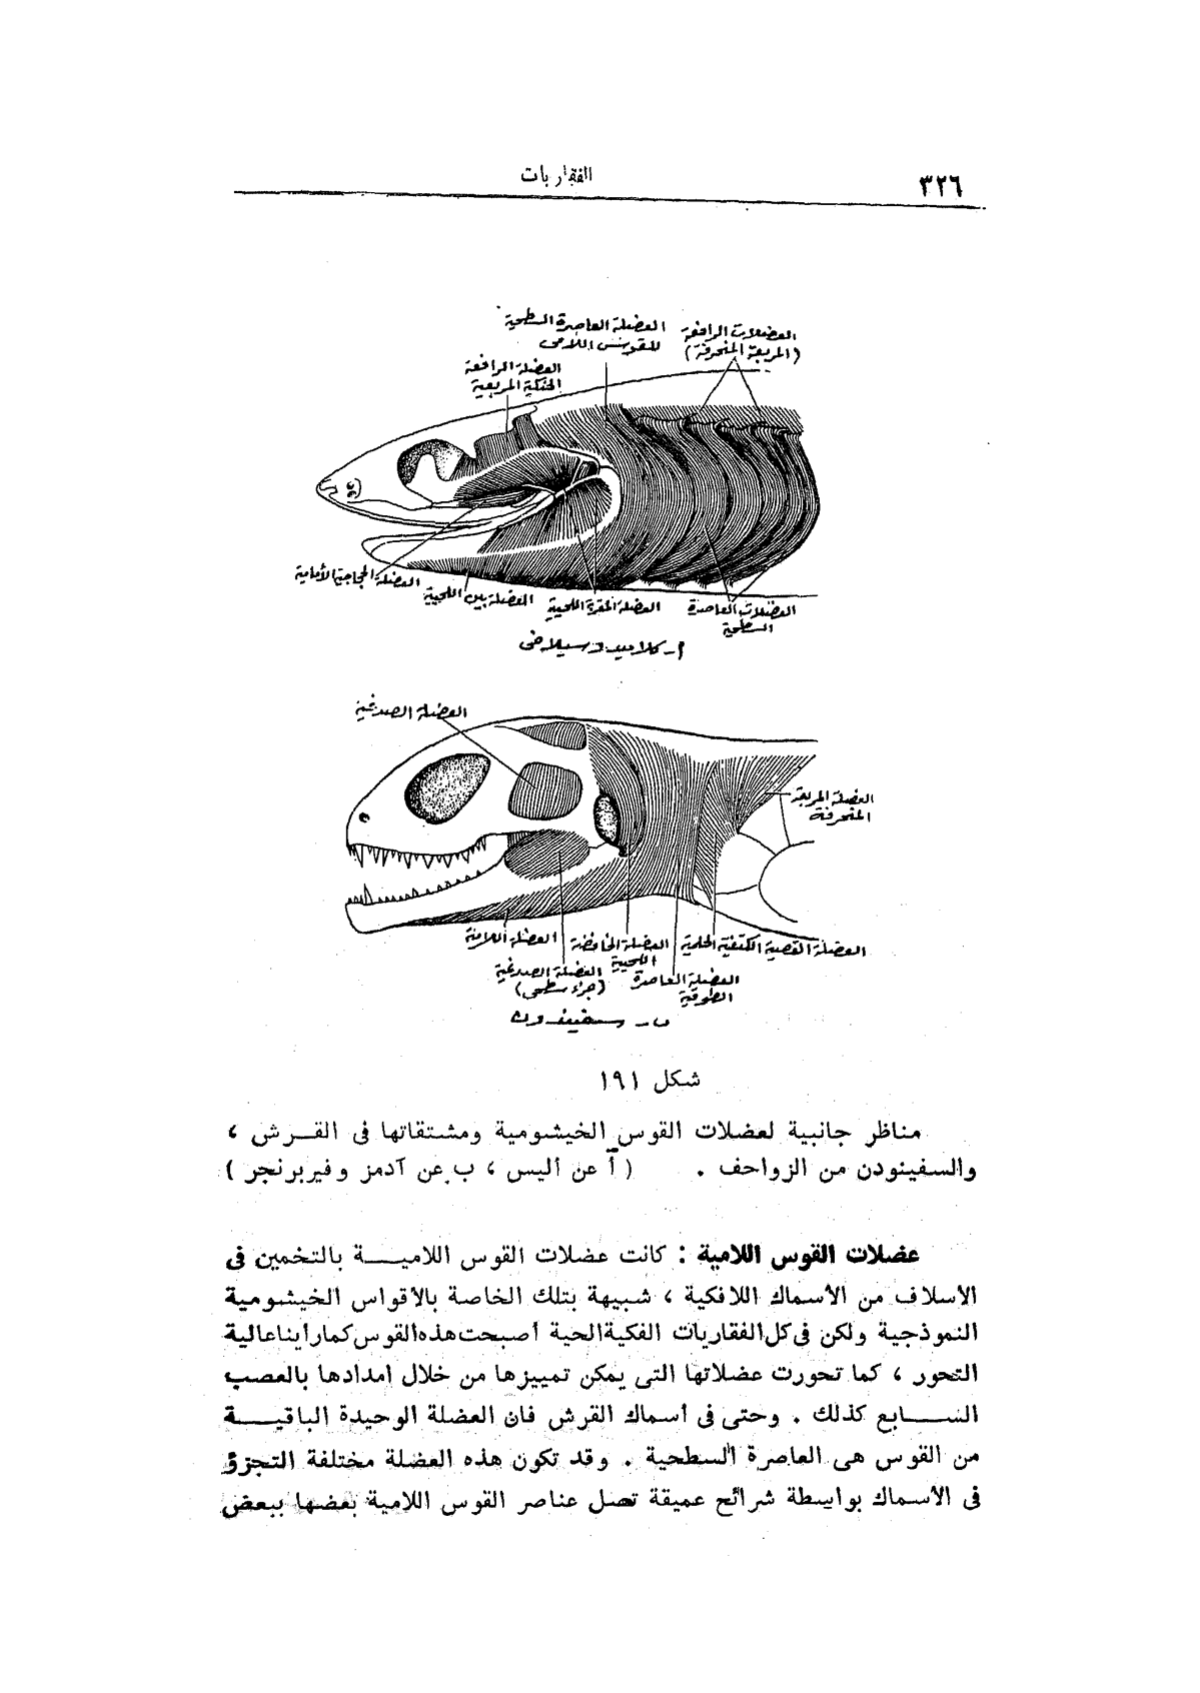 ٣٢٦
الفقاريات
العضلات الرافعة
(المربعة المنحرفة)
العضلة العاصرة السطحية
للقوس اللامى
العضلة الرافعة
الحنكية المربعية
العضلة الحجاجية الأمامية
العضلة بين اللحيية
العضلة المقربة اللحيية
العضلات العاصرة
السطحية
أ - كلاميدوسيلاخى
العضلة الصدغية
العضلة المربعة
المنحرفة
العضلة القصية الكتفية الحلمية
العضلة الخافضة
اللحيية
العضلة اللامية
العضلة العاصرة
الطوقية
العضلة الصدغية
(جزء سطحى)
ب - سفينودن
شكل ١٩١
مناظر جانبية لعضلات القوس الخيشومية ومشتقاتها فى القـرش ،
والسفينودن من الزواحف . ( أ عن أليس ، ب عن آدمز وفيربرنجر )
عضلات القوس اللامية : كانت عضلات القوس اللاميـــة بالتخمين فى
الأسلاف من الأسماك اللافكية ، شبيهة بتلك الخاصة بالأقواس الخيشومية
النموذجية ولكن فى كل الفقاريات الفكية الحية أصبحت هذه القوس كما رأينا عالية
التحور ، كما تحورت عضلاتها التى يمكن تمييزها من خلال امدادها بالعصب
الســـابع كذلك . وحتى فى أسماك القرش فان العضلة الوحيدة الباقيـــة
من القوس هى العاصرة السطحية . وقد تكون هذه العضلة مختلفة التجزؤ
فى الأسماك بواسطة شرائح عميقة تصل عناصر القوس اللامية بعضها ببعض